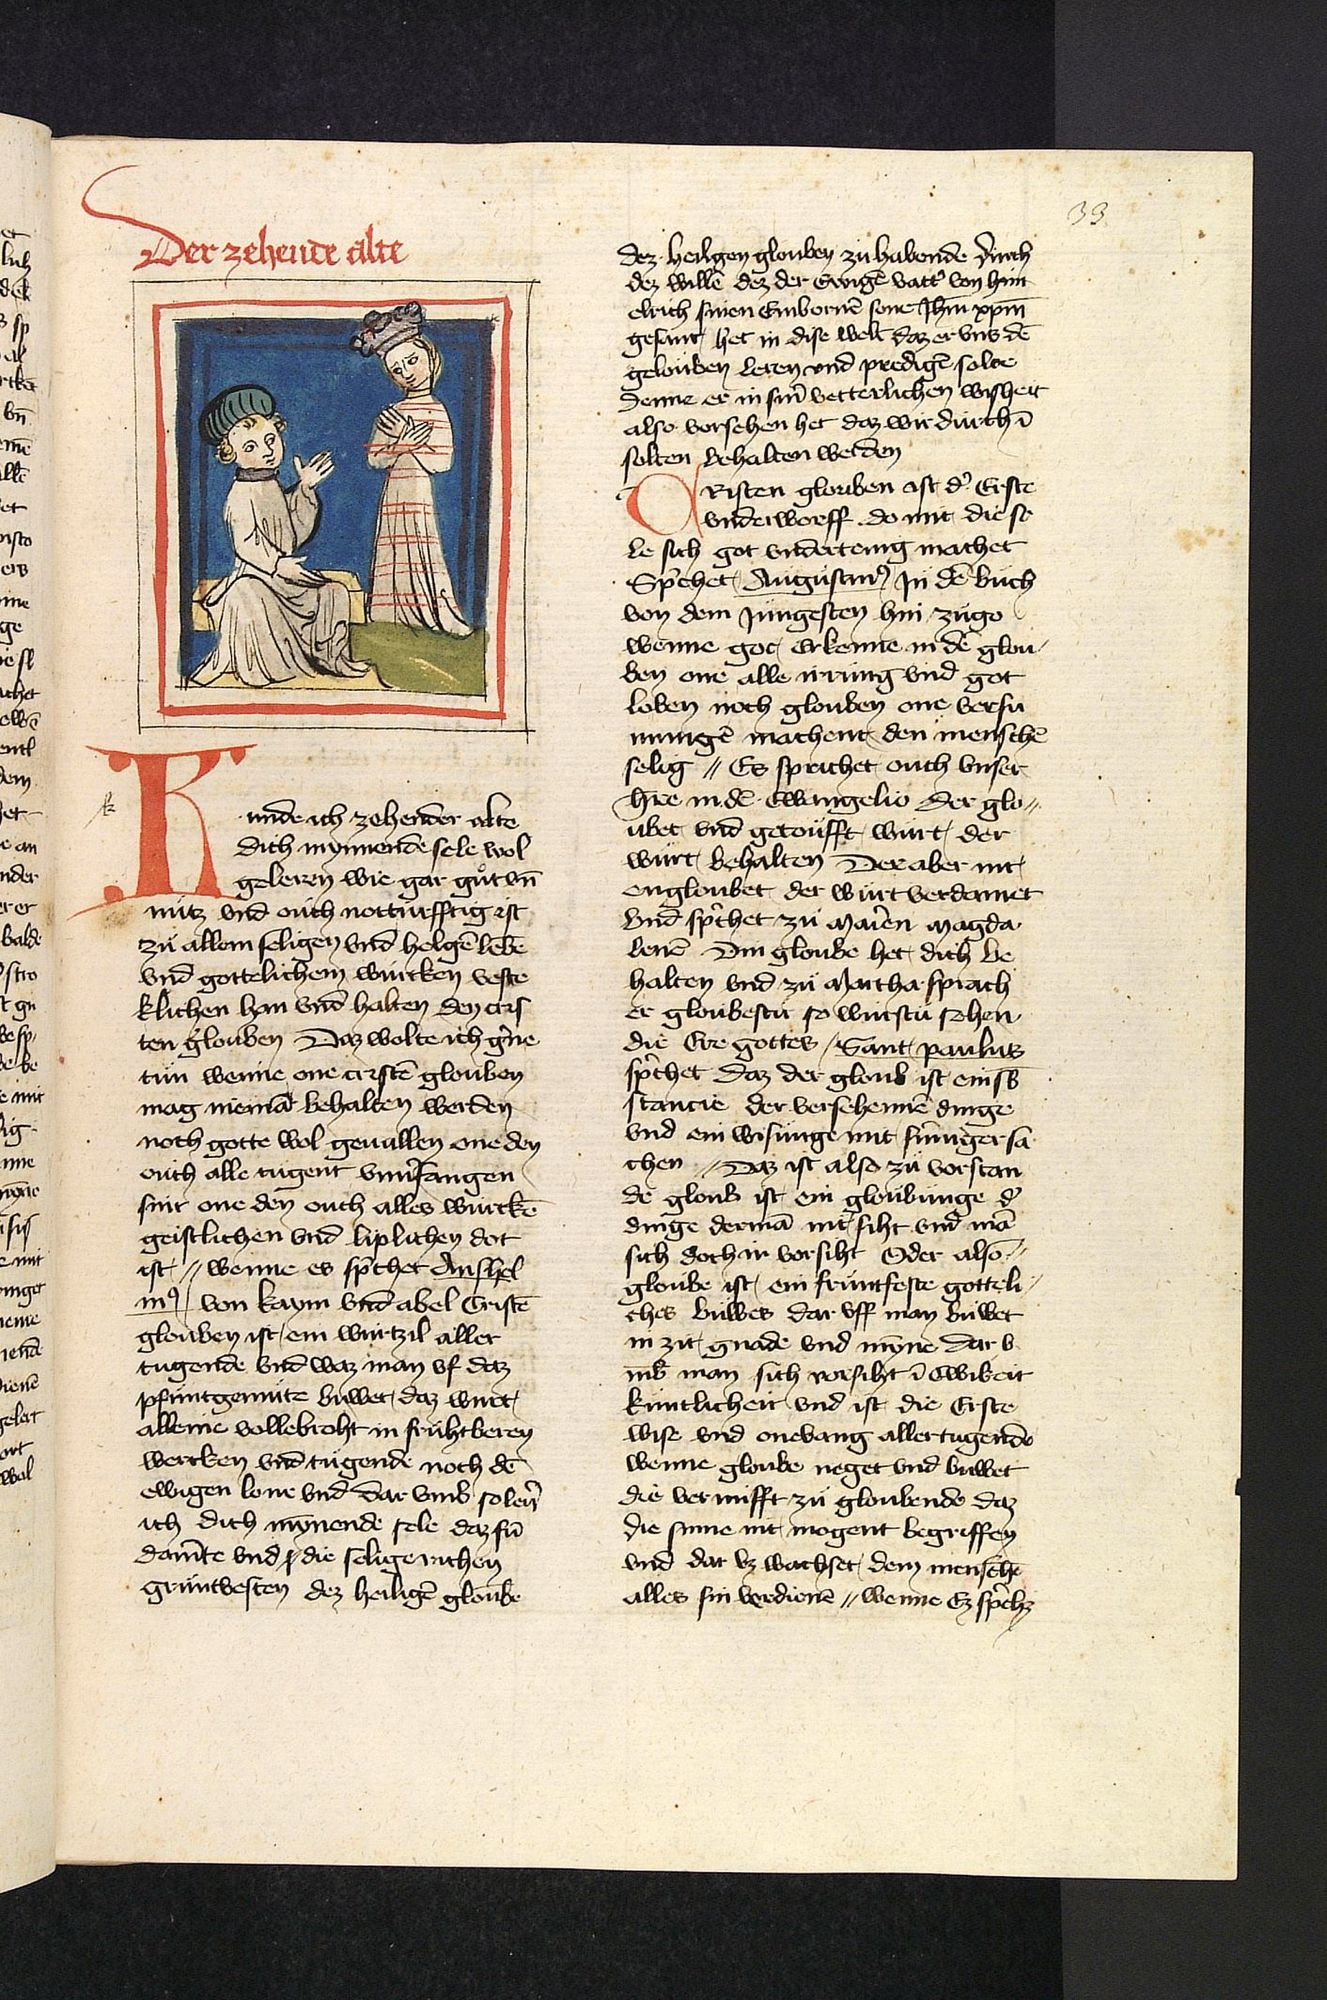 33
Der zehende alte
k
Kunde ich zehender alte
dich mynnende sele wol
geleren wie gar gůt vn̄
nütz vnd ouch notturfftig ist
zů allem seligen vnd helgē lebē
vnd gottelichem würcken veste
klichen han vnd halten den cris
ten glouben Daz wolte ich gˀne
tůn wenne one cristē glouben
mag niemā behalten werden
noch gotte wol geuallen one den
ouch alle tugent vmˀfangen
sint one den ouch alles würckē
geistlichen vnd liplichen dot
ist // wenne es spˀchet Anshel
mꝰ von kaym vnd abel Cristē
glouben ist ein wurtzil aller
tugende vnd waz man vf daz
pfuntgemüte buwet daz wurt
alleine vollebroht in fruhtberen
wercken vnd tugende noch dē
ewigen lone vnd dar vmb so lerˀ
ich dich mȳnende sele daz fū
damˀte vnd die selige richen
gruntvesten dez heiligē gloube
dez heiligen glouben zů habende durch
dez willē dez der Ewige vattˀ von him
elrich sinen Einbornē sone Jhm̄ xpm̄
gesant het in dise welt daz er vns dē
gelouben leren vnd predigē solte
Denne er in sinˀ vetterlichen wisheit
also vorsehen het daz wir durch ī
solten behalten werden
Cristen glouben ist dˀ Erste
vnderworff do mit die se
le sich got vndertenig machet
Spˀchet Augustinꝰ Jn dē buch
von dem Jungesten hin zuge
wenne got erkenne in dē glou
ben one alle irrung vnd got
loben noch glouben one versu
mungē machent den menschē
selig // Es sprichet ouch vnser
hˀre in dē Ewangelio Der glo
ubet vnd getoufft wurt der
wurt behalten Der aber nit
engloubet der wurt verdamet
vnd spˀchet zů Mariēn Magda
lenē Din gloube het dich be
halten vnd zů Martha sprach
er gloubestu so wurstu sehen
die Ere gottes / Sant paulus
spˀchet daz der gloub ist ein sb̄
stancie der versehennē dinge
vnd ein wisunge nit sinniger sa
chen // Daz ist also zů vorstan
de gloub ist ein gloubunge dˀ
dinge der mā nit siht vnd mā
sich doch ir vorsiht Oder also //
gloube ist ein fruntfeste gotteli
ches buwes dar vff man buwet
in zit gnade vnd mȳne dar v
mb man sich vorsiht ī Ewikeit
kuntlicheit vnd ist die Erste
wise vnd onevang aller tugende
wenne gloube neiget vnd buwet
die vernufft zů gloubende daz
die sinne nit mogent begriffen
vnd dar vz wachset dem menschē
alles sin verdienē // wenne Ez spˀchz